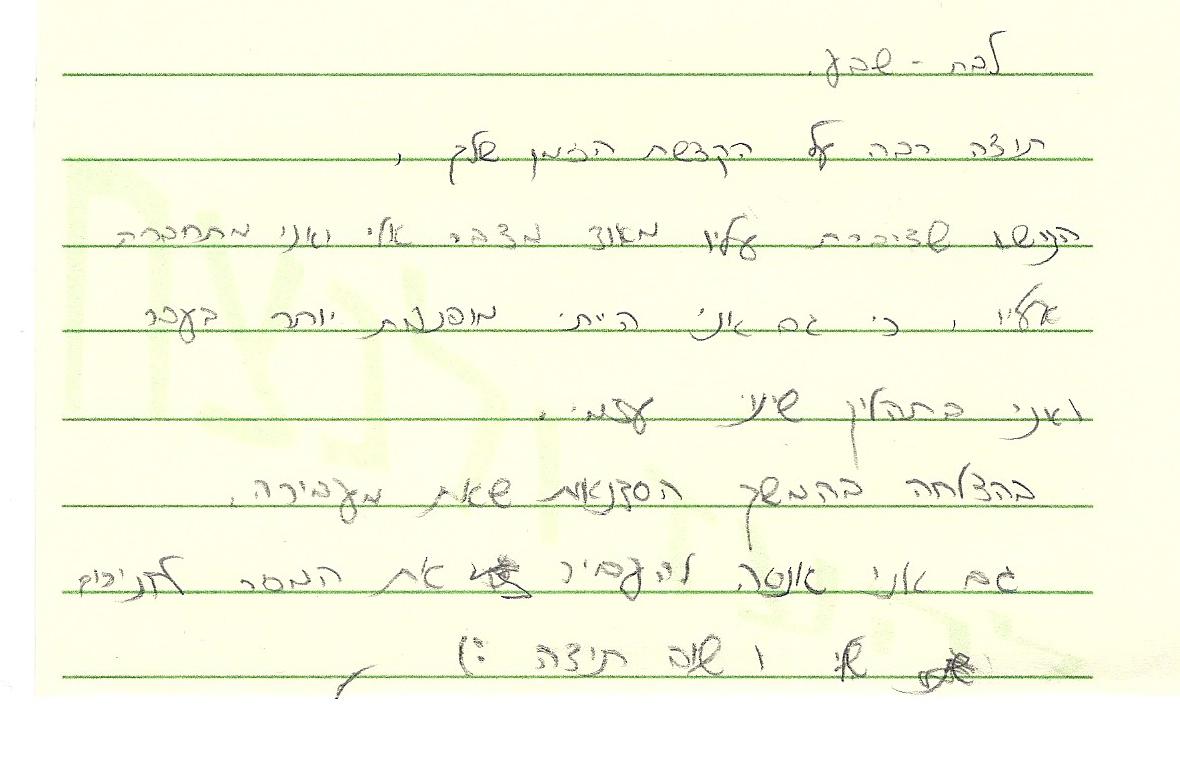 לבת - שבע.
תודה רבה על הקדשת הזמן שלך,
הנושא שדיברת עליו מאוד מדבר אלי ואני מתחברת
אליו, כי גם אני הייתי מופנמת יותר בעבר
ואני בתהליך שינוי עצמי.
בהצלחה בהמשך הסדנאות שאת מעבירה.
גם אני אנסה להעביר את המסר לחניכים
שלי ושוב תודה :)